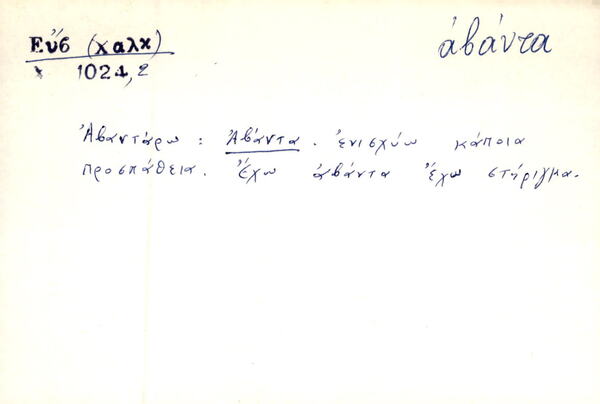 Εὔβ (χαλκ)
ἀβάντα
1024,2
Ἀβαντάρω : Ἀβάντα. ἐνισχύω κάποια
προσπάθεια. Ἔχω ἀβάντα Ἔχω στήριγμα.